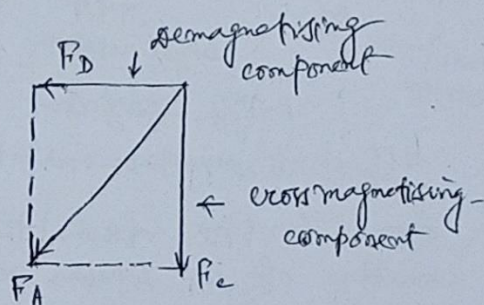 Demagnetising
component
F_D
crossmagnetising
component
F_A
F_c